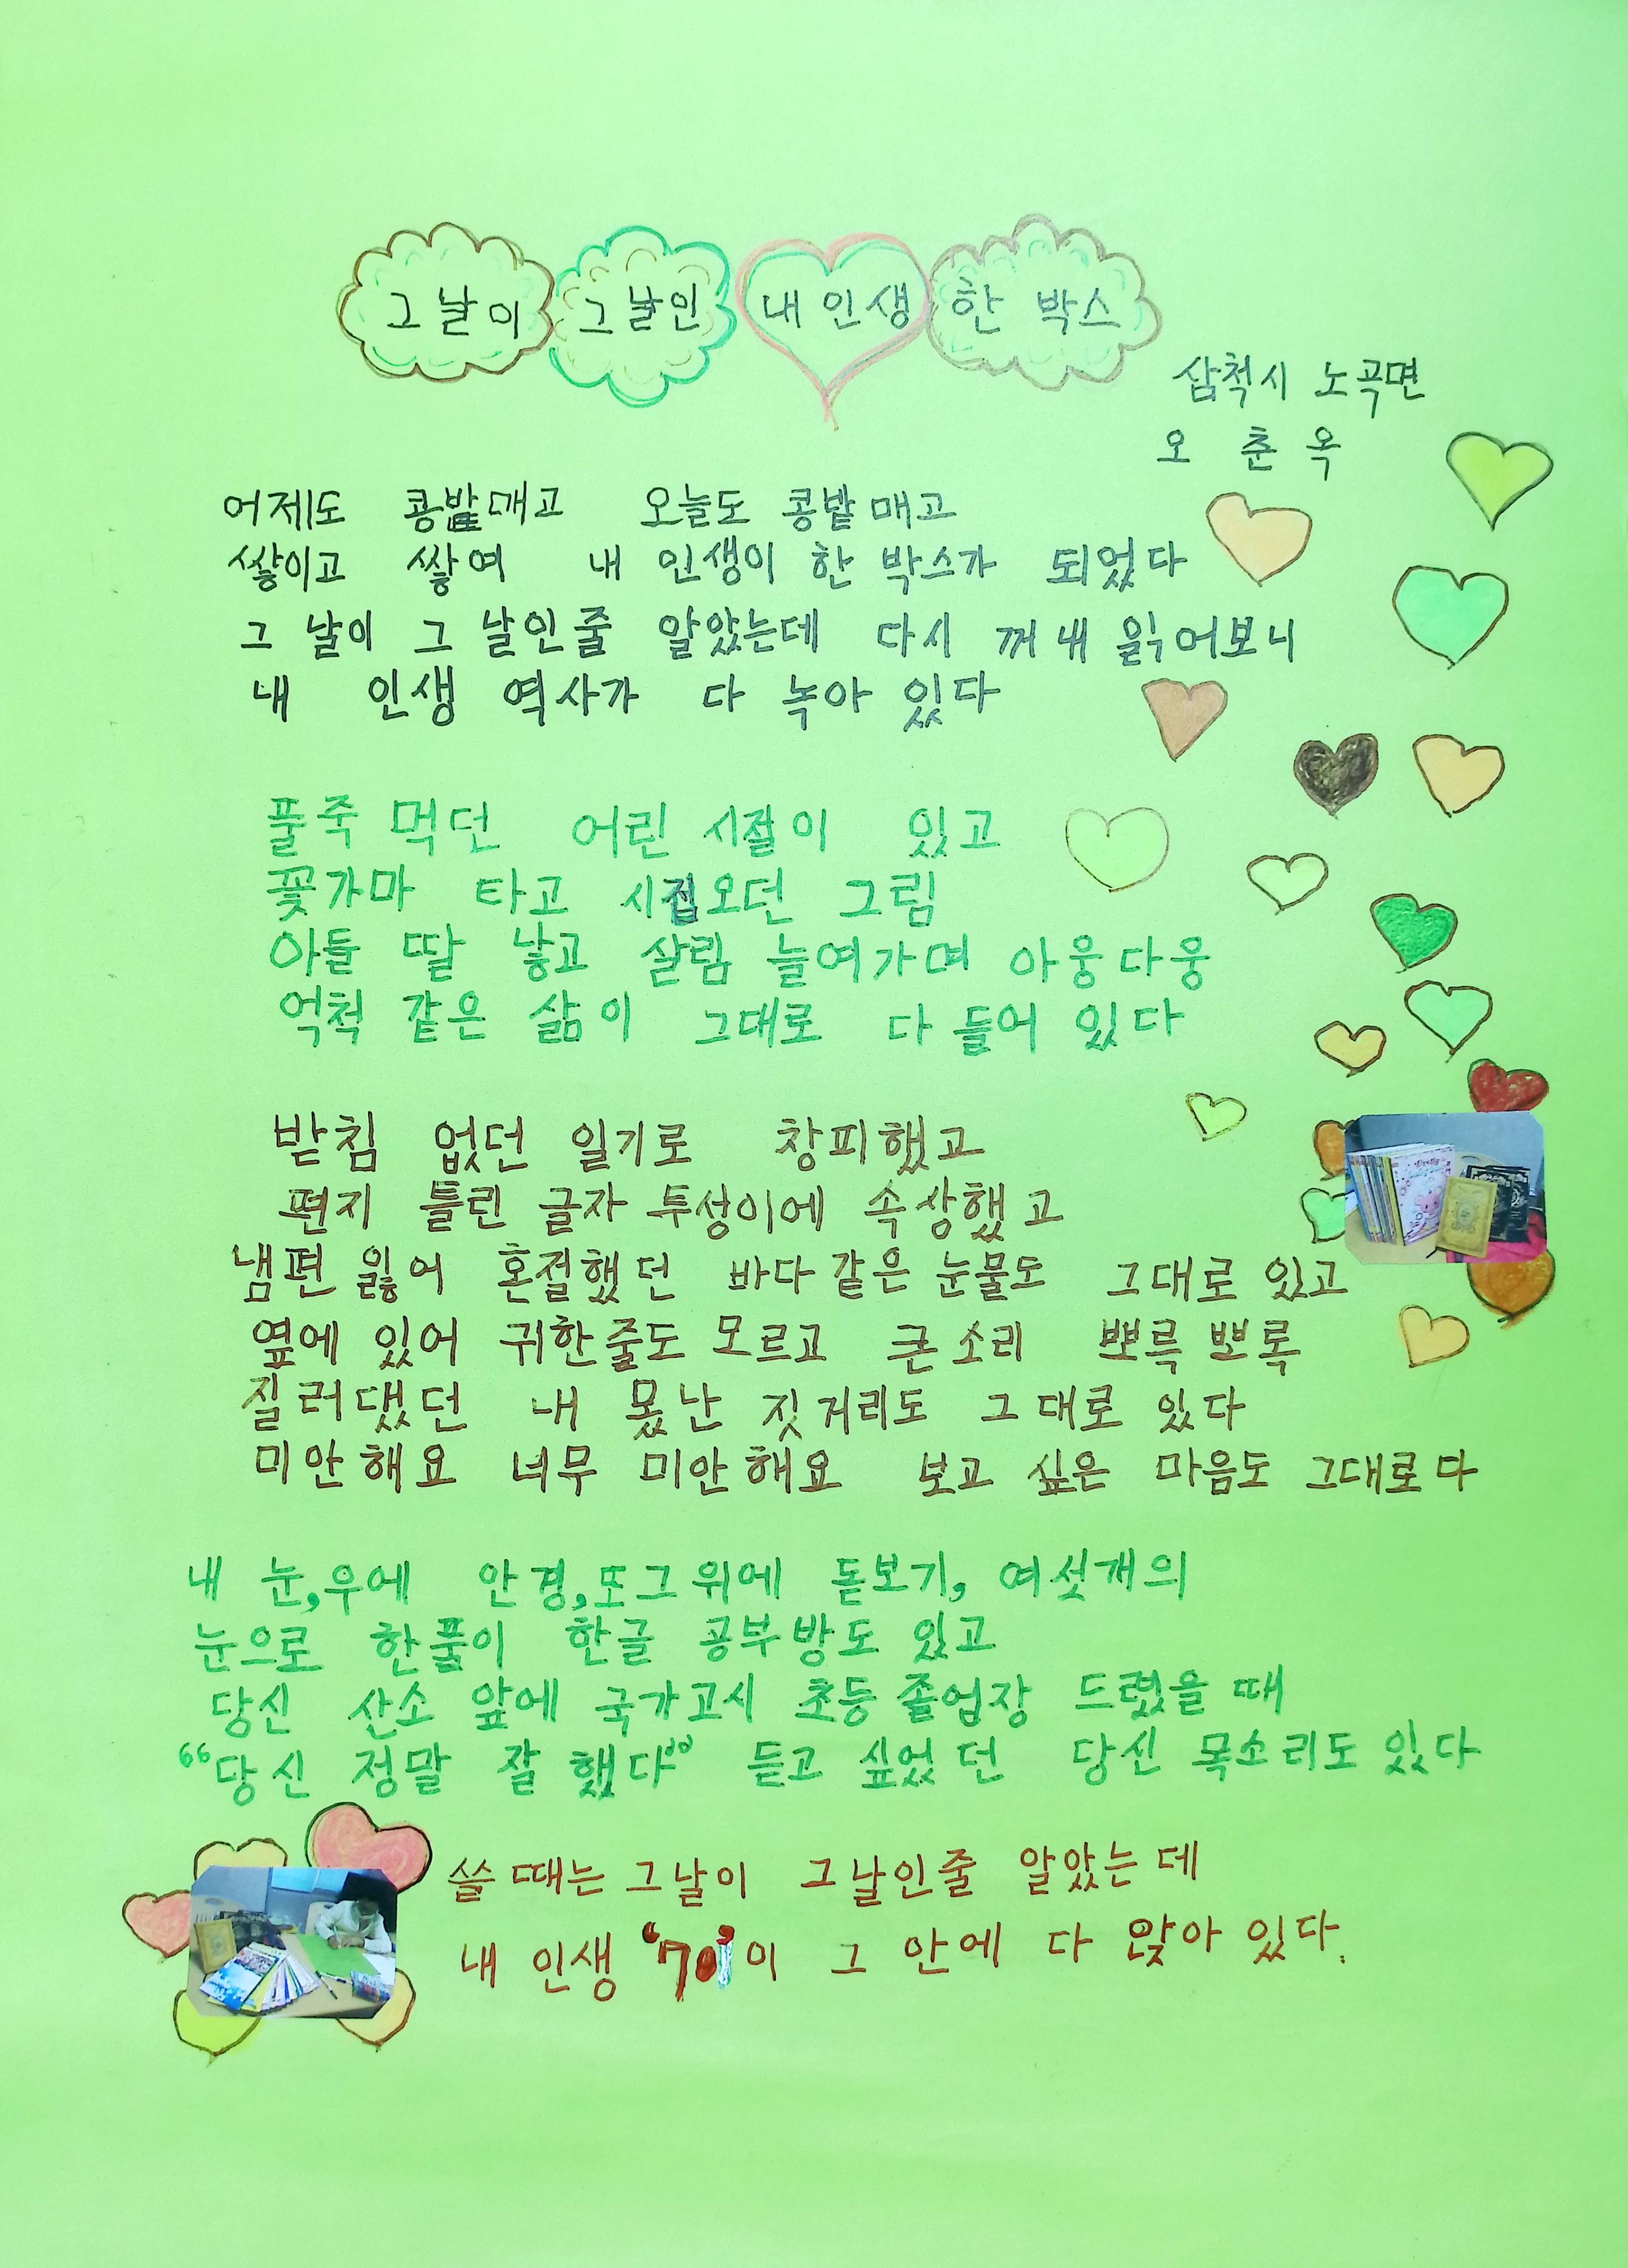 그날이 그날인 내 인생 한 박스
삼척시 노곡면
오 춘 옥
어제도 콩밭매고 오늘도 콩밭 매고
쌓이고 쌓여 내 인생이 한 박스가 되었다
그 날이 그 날인줄 알았는데 다시 꺼내 읽어보니
내 인생 역사가 다 녹아 있다
풀죽 먹던 어린 시절이 있고
꽃가마 타고 시집오던 그림
아들 딸 낳고 살림 늘여가며 아웅다웅
억척 같은 삶이 그대로 다 들어 있다
받침 없던 일기로 창피했고
편지 틀린 글자 투성이에 속상했고
냄편 잃어 혼절했던 바다같은 눈물도 그대로 있고
옆에 있어 귀한줄도 모르고 큰소리 뽀륵뽀록
질러댔던 내 못난 짓거리도 그대로 있다
미안해요 너무 미안해요 보고 싶은 마음도 그대로다
내 눈,우에 안경,또그위에 돋보기, 여섯개의
눈으로 한풂이 한글 공부방도 있고
당신 산소 앞에 국가고시 초등 졸업장 드렸을 때
“당신 정말 잘 했다” 듣고 싶었던 당신 목소리도 있다
쓸때는 그날이 그날인줄 알았는데
내 인생 ‘70’이 그 안에 다 앉아 있다.